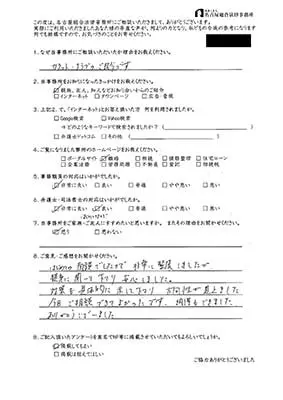 名古屋総合法律事務所
この度は、名古屋総合法律事務所にご相談いただきまして、ありがとうございます。
1. なぜ当事務所にご相談いただいたか理由をお教えください。
2. 当事務所をお知りになったきっかけをお教えください。
親族、友人、知人などお知り合いからのご紹介
インターネット タウンページ 広告・看板
3. 上記2. で、「インターネット」とお答え頂いた方 何を利用されましたか。
Google検索 Yahoo検索
→どのようなキーワードで検索されましたか?(
弁護士ドットコム その他(
4. ご覧になりました事務所のホームページをお教えください。
ポータルサイト 離婚 相続 債務整理 住宅ローン
企業法務 不動産 登記
5. 事務職員の対応はいかがでしたか。
非常に良い 良い 普通 やや悪い 悪い
6. 弁護士・司法書士の対応はいかがでしたか。
非常に良い 良い 普通 やや悪い 悪い
7. 当事務所をご家族・ご友人にすすめたいと思いますか。 またその理由をお聞かせください。
思う 思わない
8. ご意見・ご感想をお聞かせください。
はじめての相談でしたので 非常に緊張しましたが
親身に聞いて下り 安心しました。
対策を具体的に示して下り 方向性が見えました
今日ご相談できてよかったです。
ありがとうございました
9. ご記入頂いたアンケートを匿名でHP等に掲載させていただいてもよろしいでしょうか。
掲載しても良い
掲載は控えてほしい
ご協力ありがとうございました